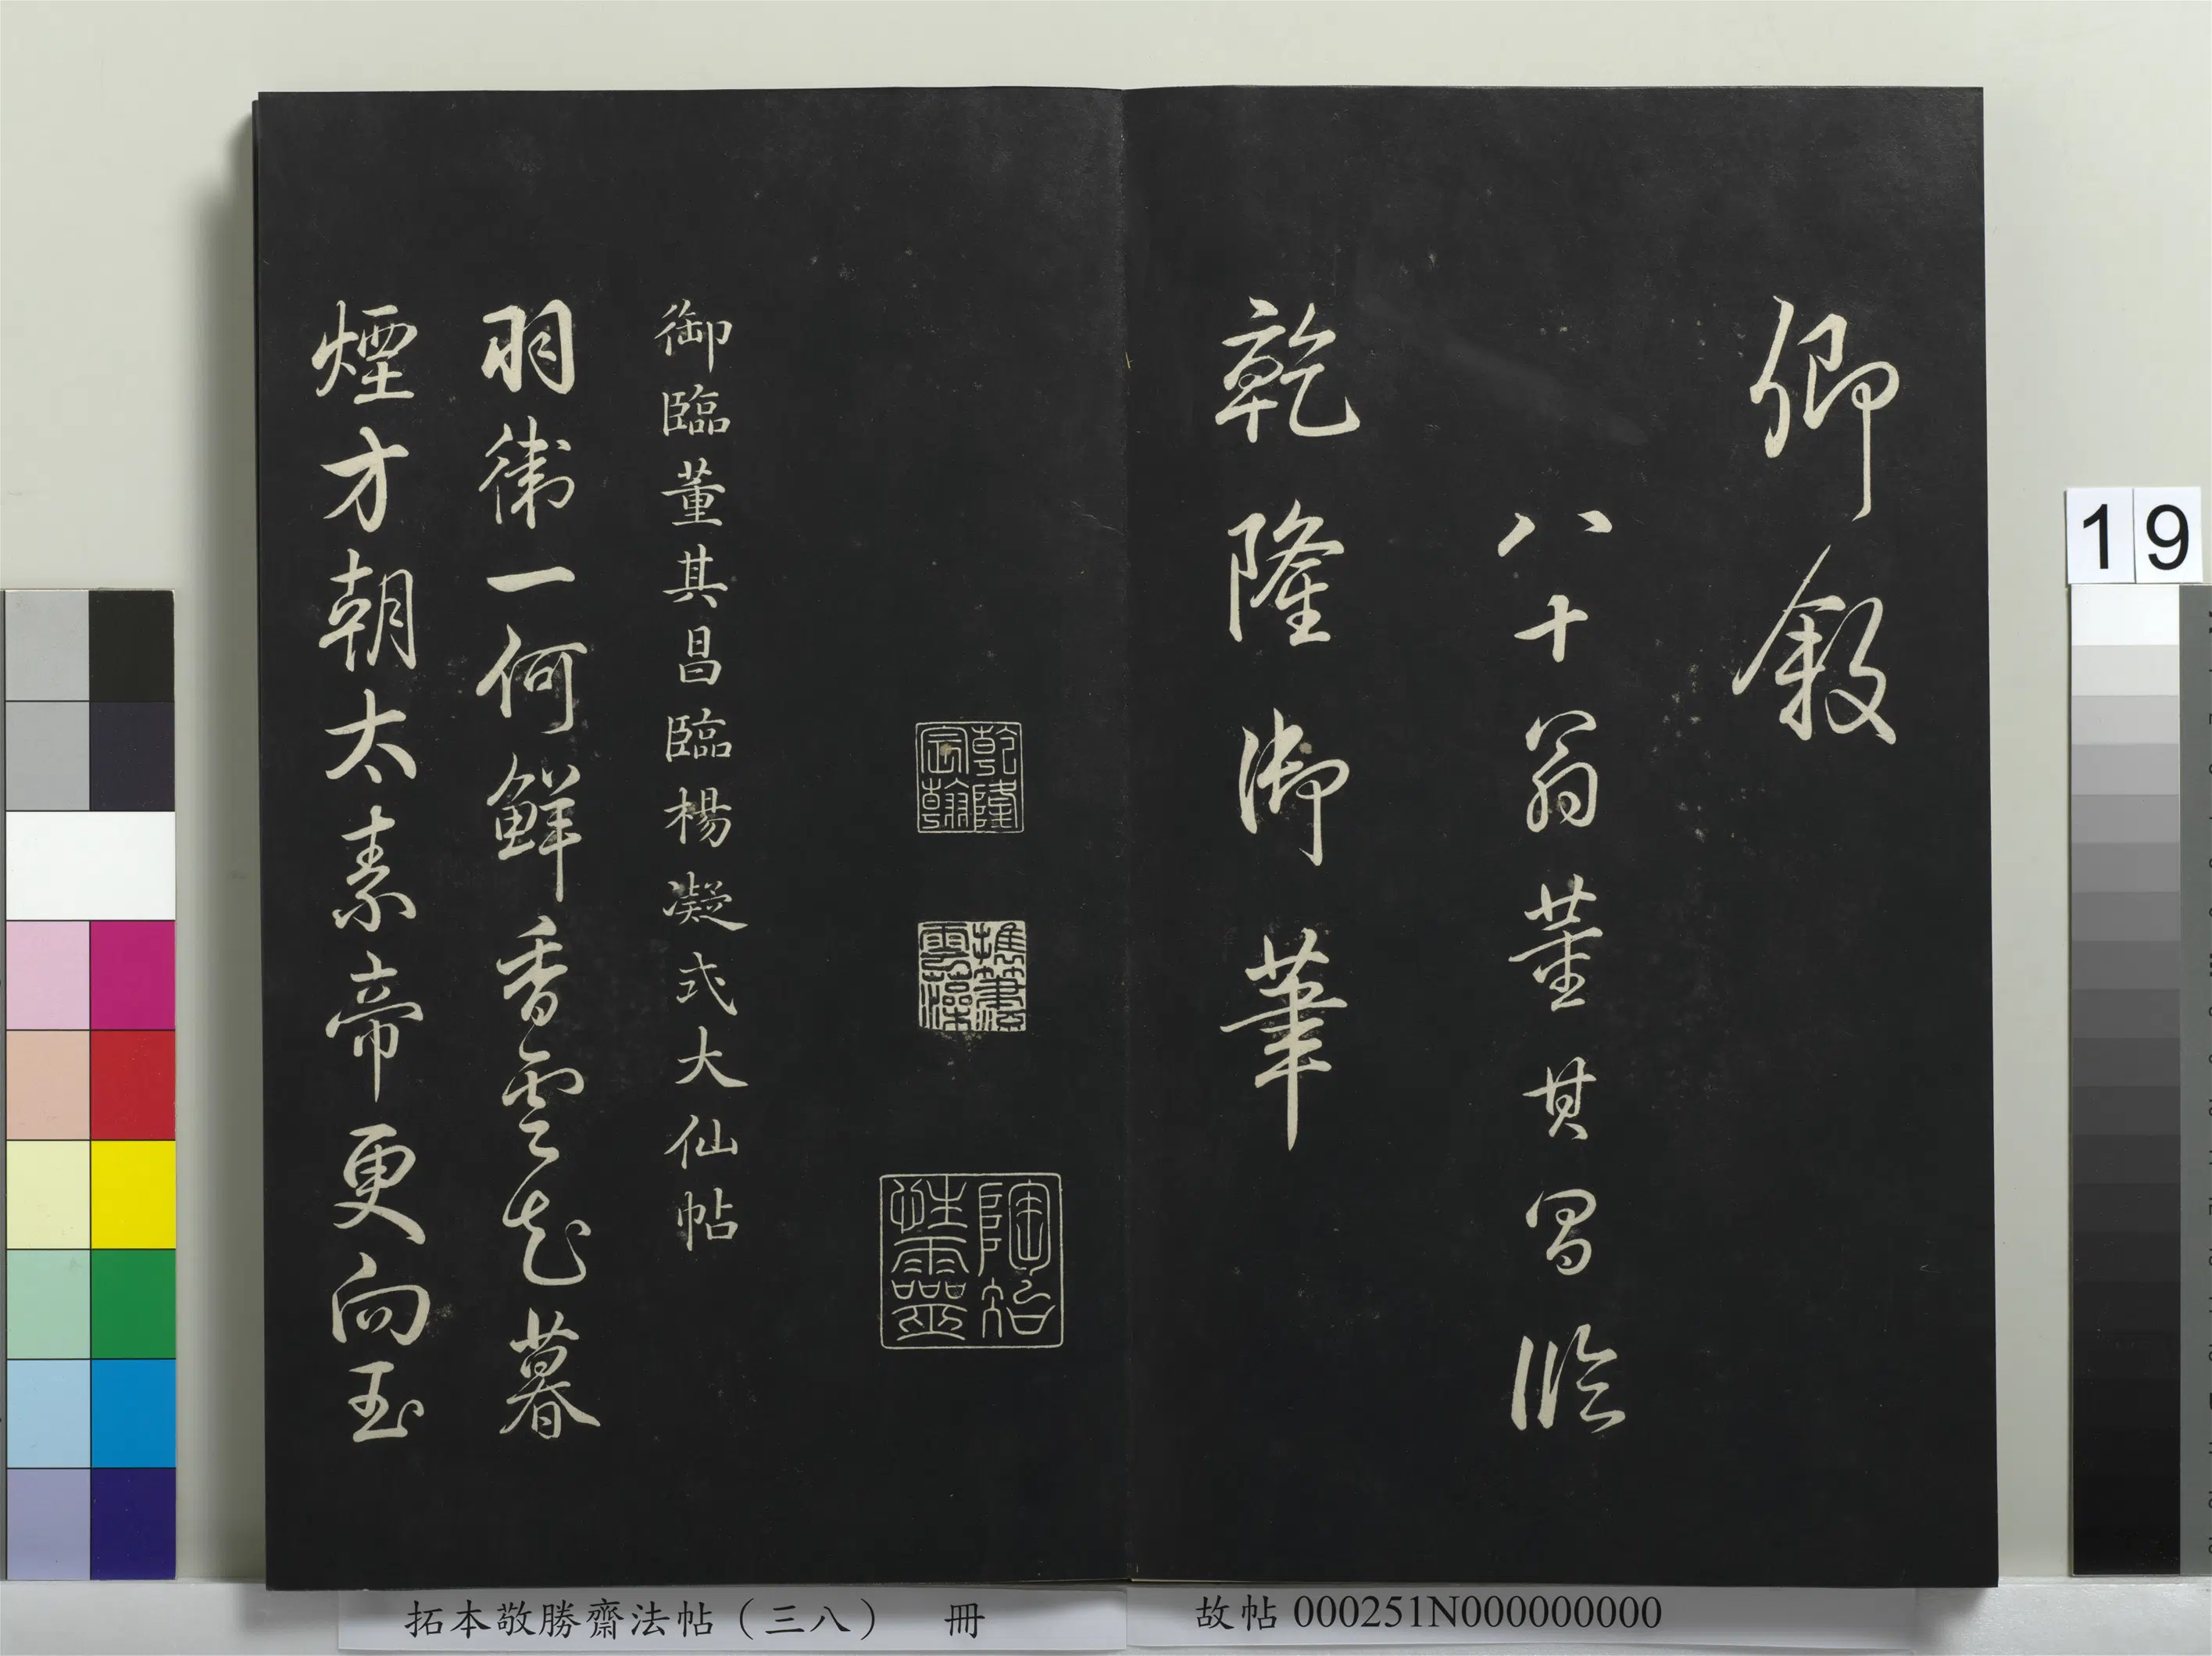 卿敘
八十翁董其昌臨
乾隆御筆
乾隆宸翰
陶冶性靈
御臨董其昌臨楊凝式大仙帖
羽衛一何鮮香雲起暮
煙方朝太素帝更向玉
19
拓本敬勝齋法帖（三八） 冊
故帖 000251N000000000